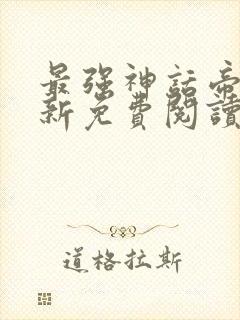 最强神话帝
新免費閱讀
道格拉斯